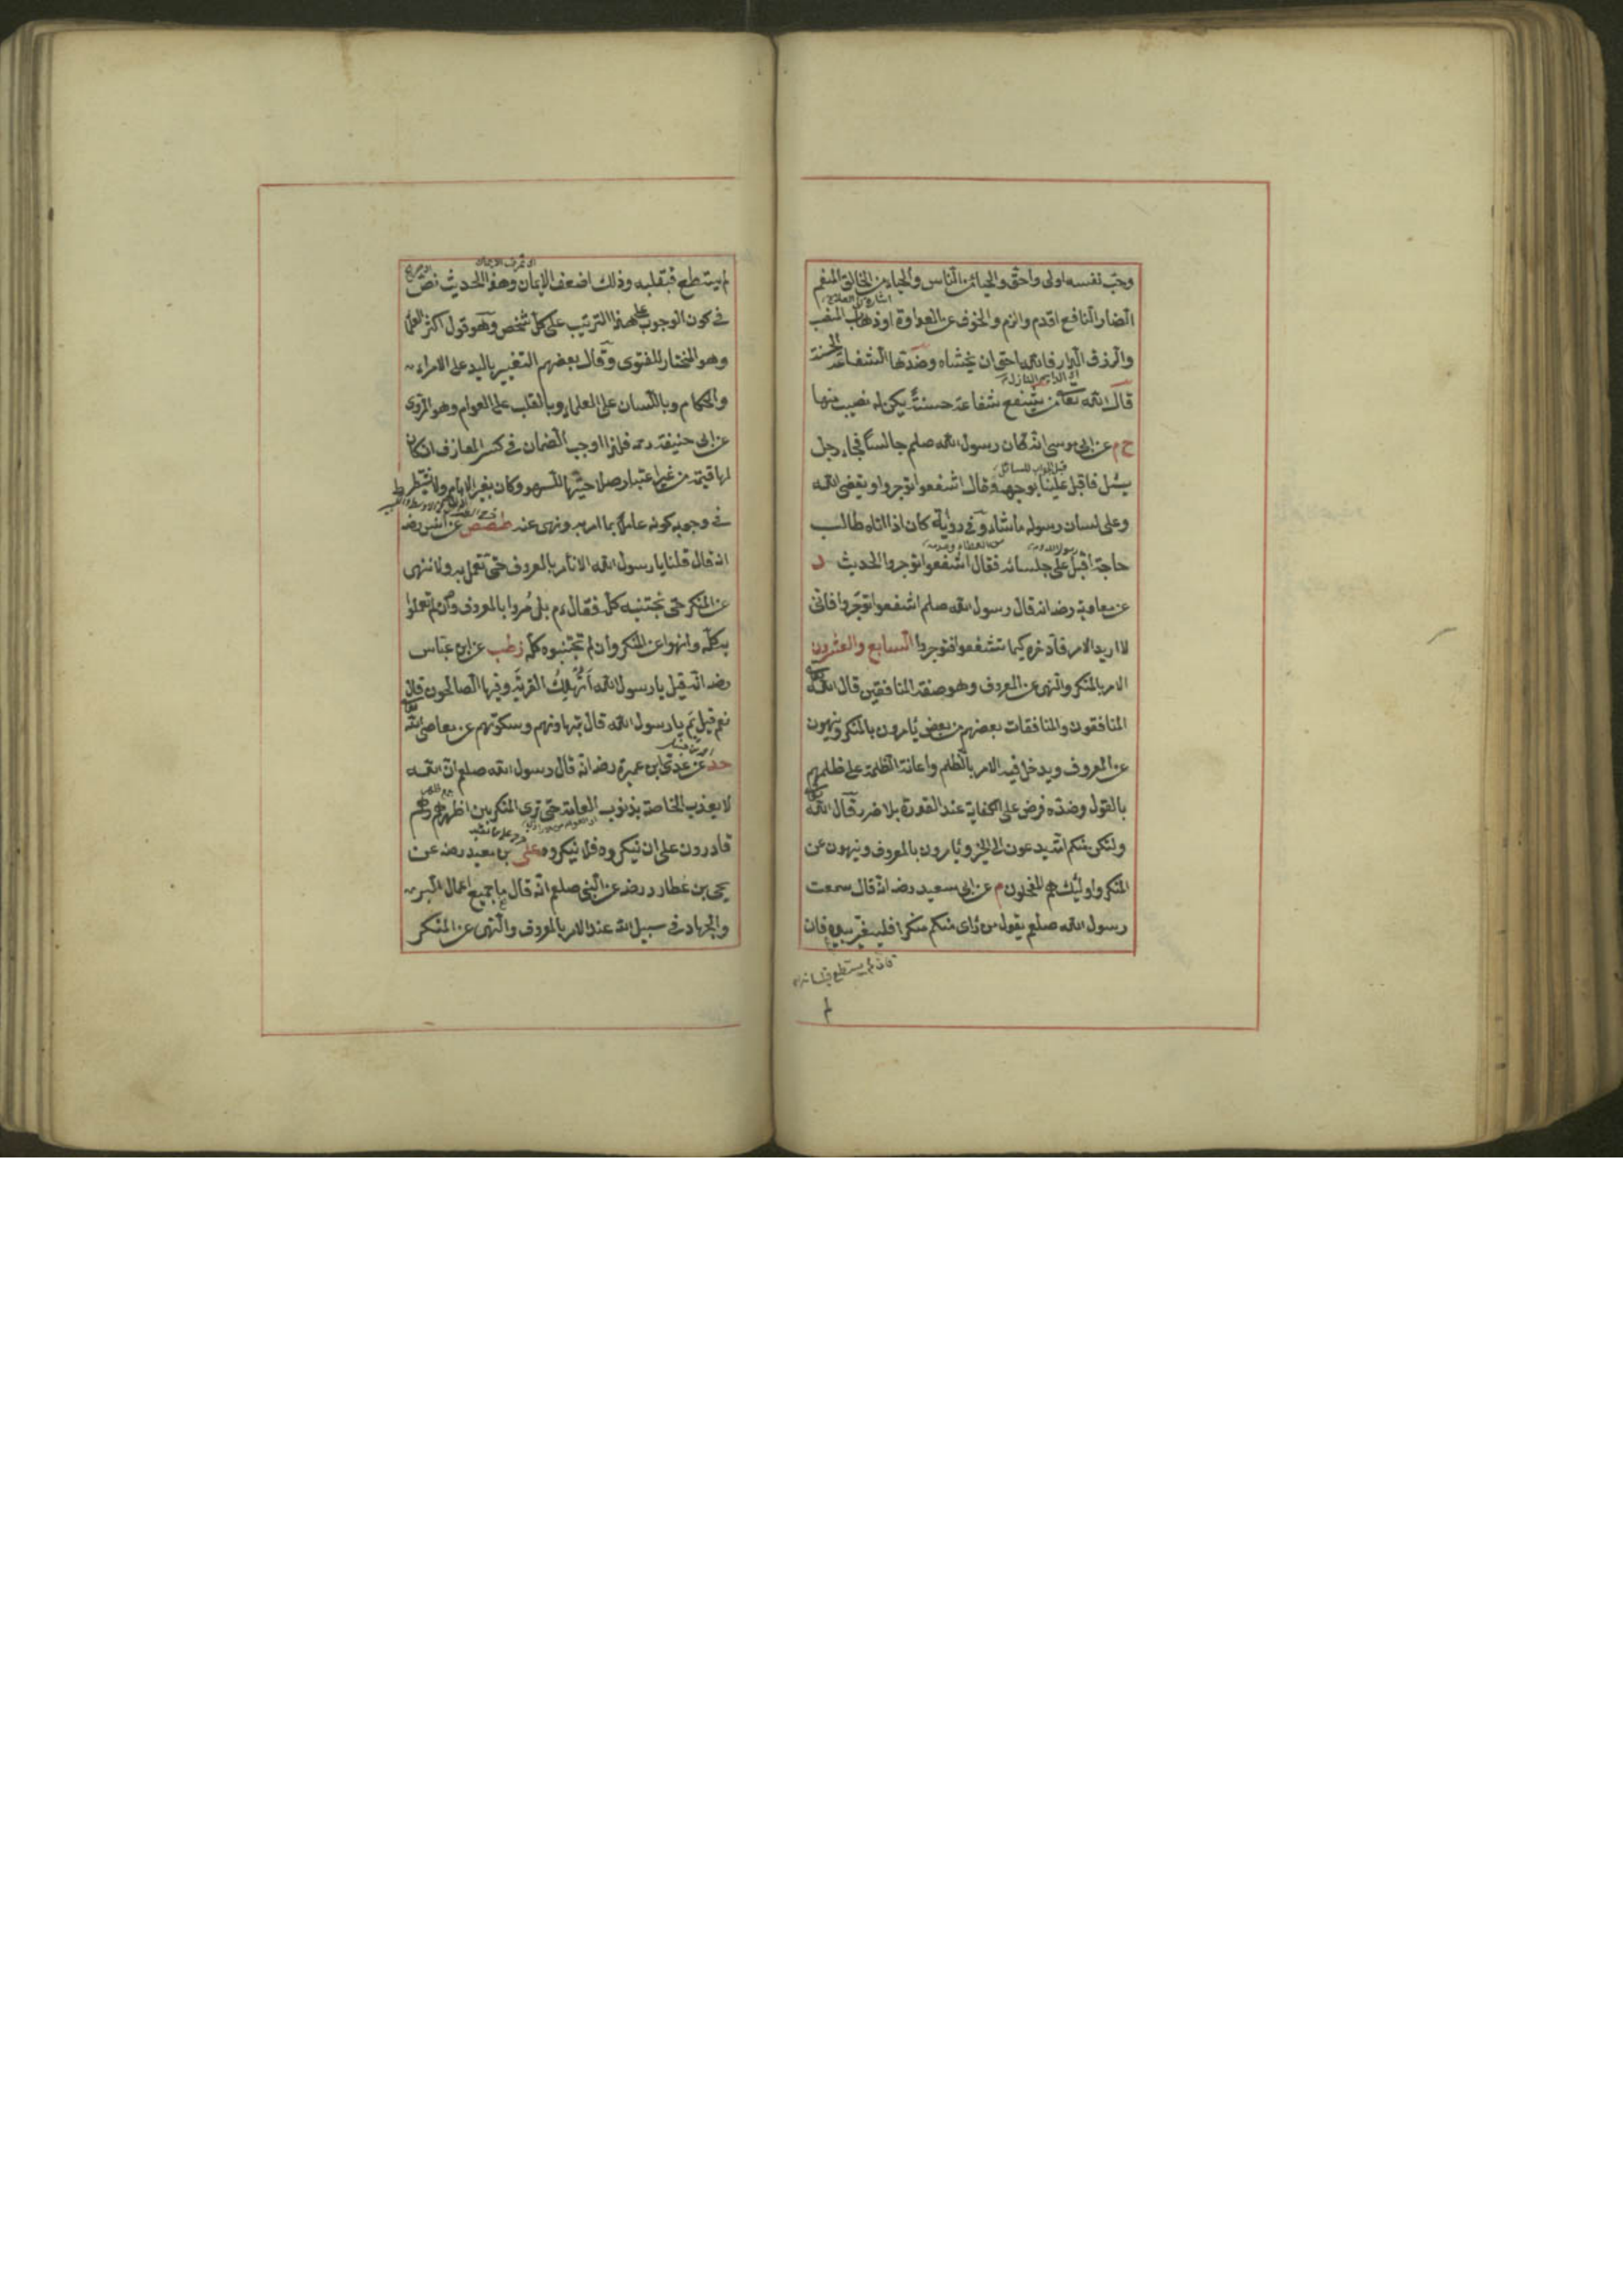 وحب نفسه اولى واحق والحياء من الناس والحياء من الخالق المنعم
الضار النافع اقدم والزم والخوف عن العداوة او ذهاب المنصب
والرزق فالله احق ان يخشاه وضدها الشفاعة الحسنة
قال الله تعالى من يشفع شفاعة حسنة يكن له نصيب منها
خ م عن ابى موسى انه كان رسول الله صلعم جالسا فجاء رجل
يسئل فاقبل علينا بوجهه وقال اشفعوا توجروا ويقضى الله
وعلى لسان رسوله ما شاء وفى رواية كان اذا اتاه طالب
حاجة اقبل على جلسائه فقال اشفعوا توجروا الحديث د
عن معاوية رضه انه قال رسول الله صلعم اشفعوا توجروا فانى
لا اريد الامر فاؤخره كيما تشفعوا فتوجروا السابع والعشرون
الامر بالمنكر والنهى عن المعروف وهو صفة المنافقين قال الله تعالى
المنافقون والمنافقات بعضهم من بعض يأمرون بالمنكر وينهون
عن المعروف ويدخل فيه الامر بالظلم واعانة الظلمة على ظلمهم
بالقول وضده فرض على الكفاية عند القدرة بلا ضرر قال الله تعالى
ولتكن منكم امة يدعون الى الخير ويأمرون بالمعروف وينهون عن
المنكر واولئك هم المفلحون م عن ابى سعيد رضه انه قال سمعت
رسول الله صلعم يقول من رأى منكم منكرا فليغيره بيده فان
فان لم يستطع فبلسانه
لم
لم يستطع فبقلبه وذلك اضعف الايمان وهذا الحديث نص
فى كون الوجوب على هذا الترتيب على كل شخص وهو قول اكثر العلماء
وهو المختار للفتوى وقال بعضهم التغيير باليد على الامراء
والحكام وباللسان على العلماء وبالقلب على العوام وهو المروى
عن ابى حنيفة رحمه فلذا اوجب الضمان فى كسر المعازف ان كان
لها قيمة من غير اعتبار صلاحيتها للهو وكان بغير الامام ولا يشترط
فى وجوبه كونه عاملا بما امر به ونهى عنه طصص عن انس رضه
انه قال قلنا يا رسول الله الا نأمر بالمعروف حتى نعمل به ولا ننهى
عن المنكر حتى نجتنبه كله فقال عم بلى مروا بالمعروف وان لم تعملوا
بكله وانهوا عن المنكر وان لم تجتنبوه كله زطب عن ابن عباس
رضه انه قيل يا رسول الله أتهلك القرية وفيها الصالحون قال
نعم قيل بم يا رسول الله قال بتهاونهم وسكوتهم عن معاصى الله تعالى
حد عن عدى ابن عميرة رضه انه قال رسول الله صلعم ان الله
لا يعذب الخاصة بذنوب العامة حتى ترى المنكر بين اظهرهم وهم
قادرون على ان ينكروه فلا ينكروه على بن معبد رضه عن
يحيى بن عطارد رضه عن النبى صلعم انه قال ما جميع اعمال البر
والجهاد فى سبيل الله عند الامر بالمعروف والنهى عن المنكر